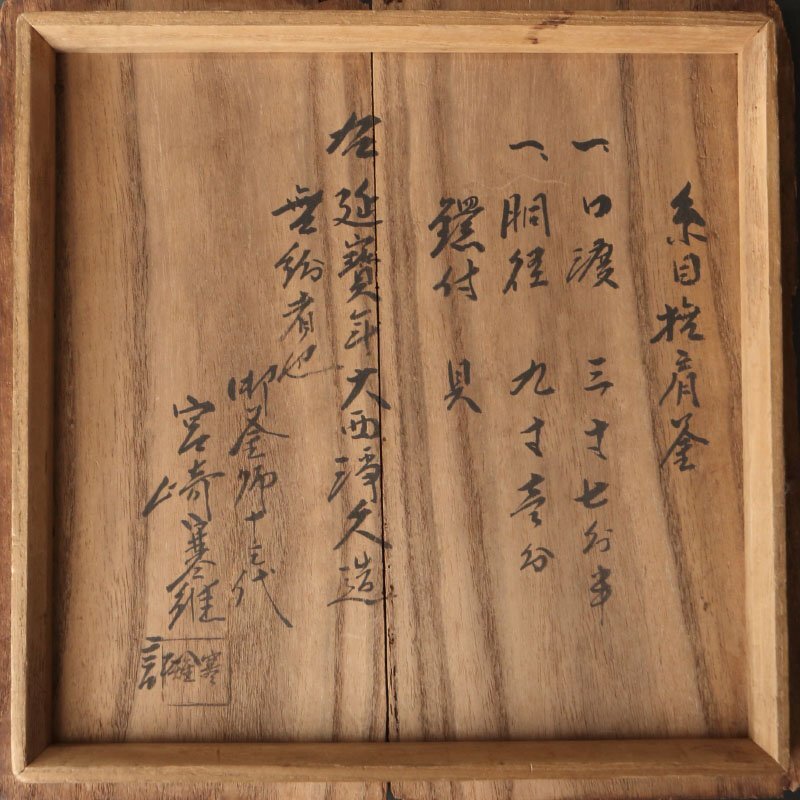 糸目撫肩釜
一、口渡 三寸七分半
一、胴径 九寸壹分
鐶付 貝
右延寳年大西淨久造
無紛者也
御釜師十三代
宮崎寒雉
記